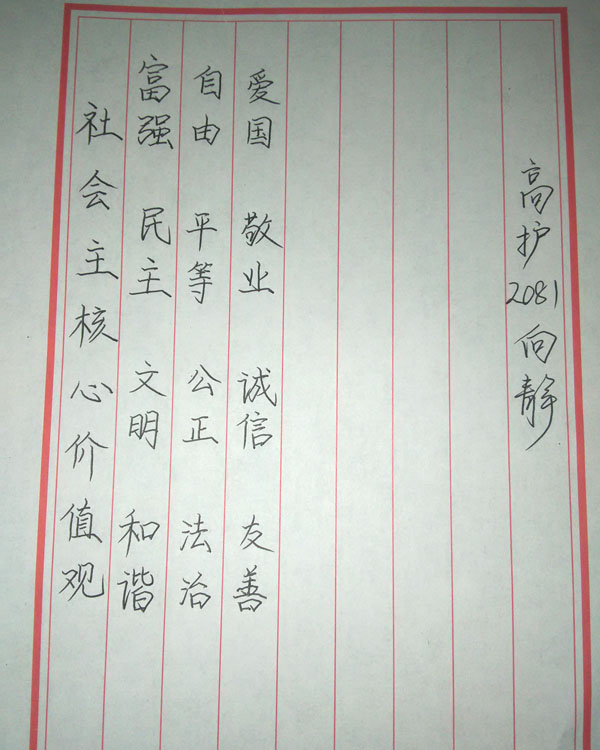 社会主核心价值观
富强 民主 文明 和谐
自由 平等 公正 法治
爱国 敬业 诚信 友善
高护2081向静